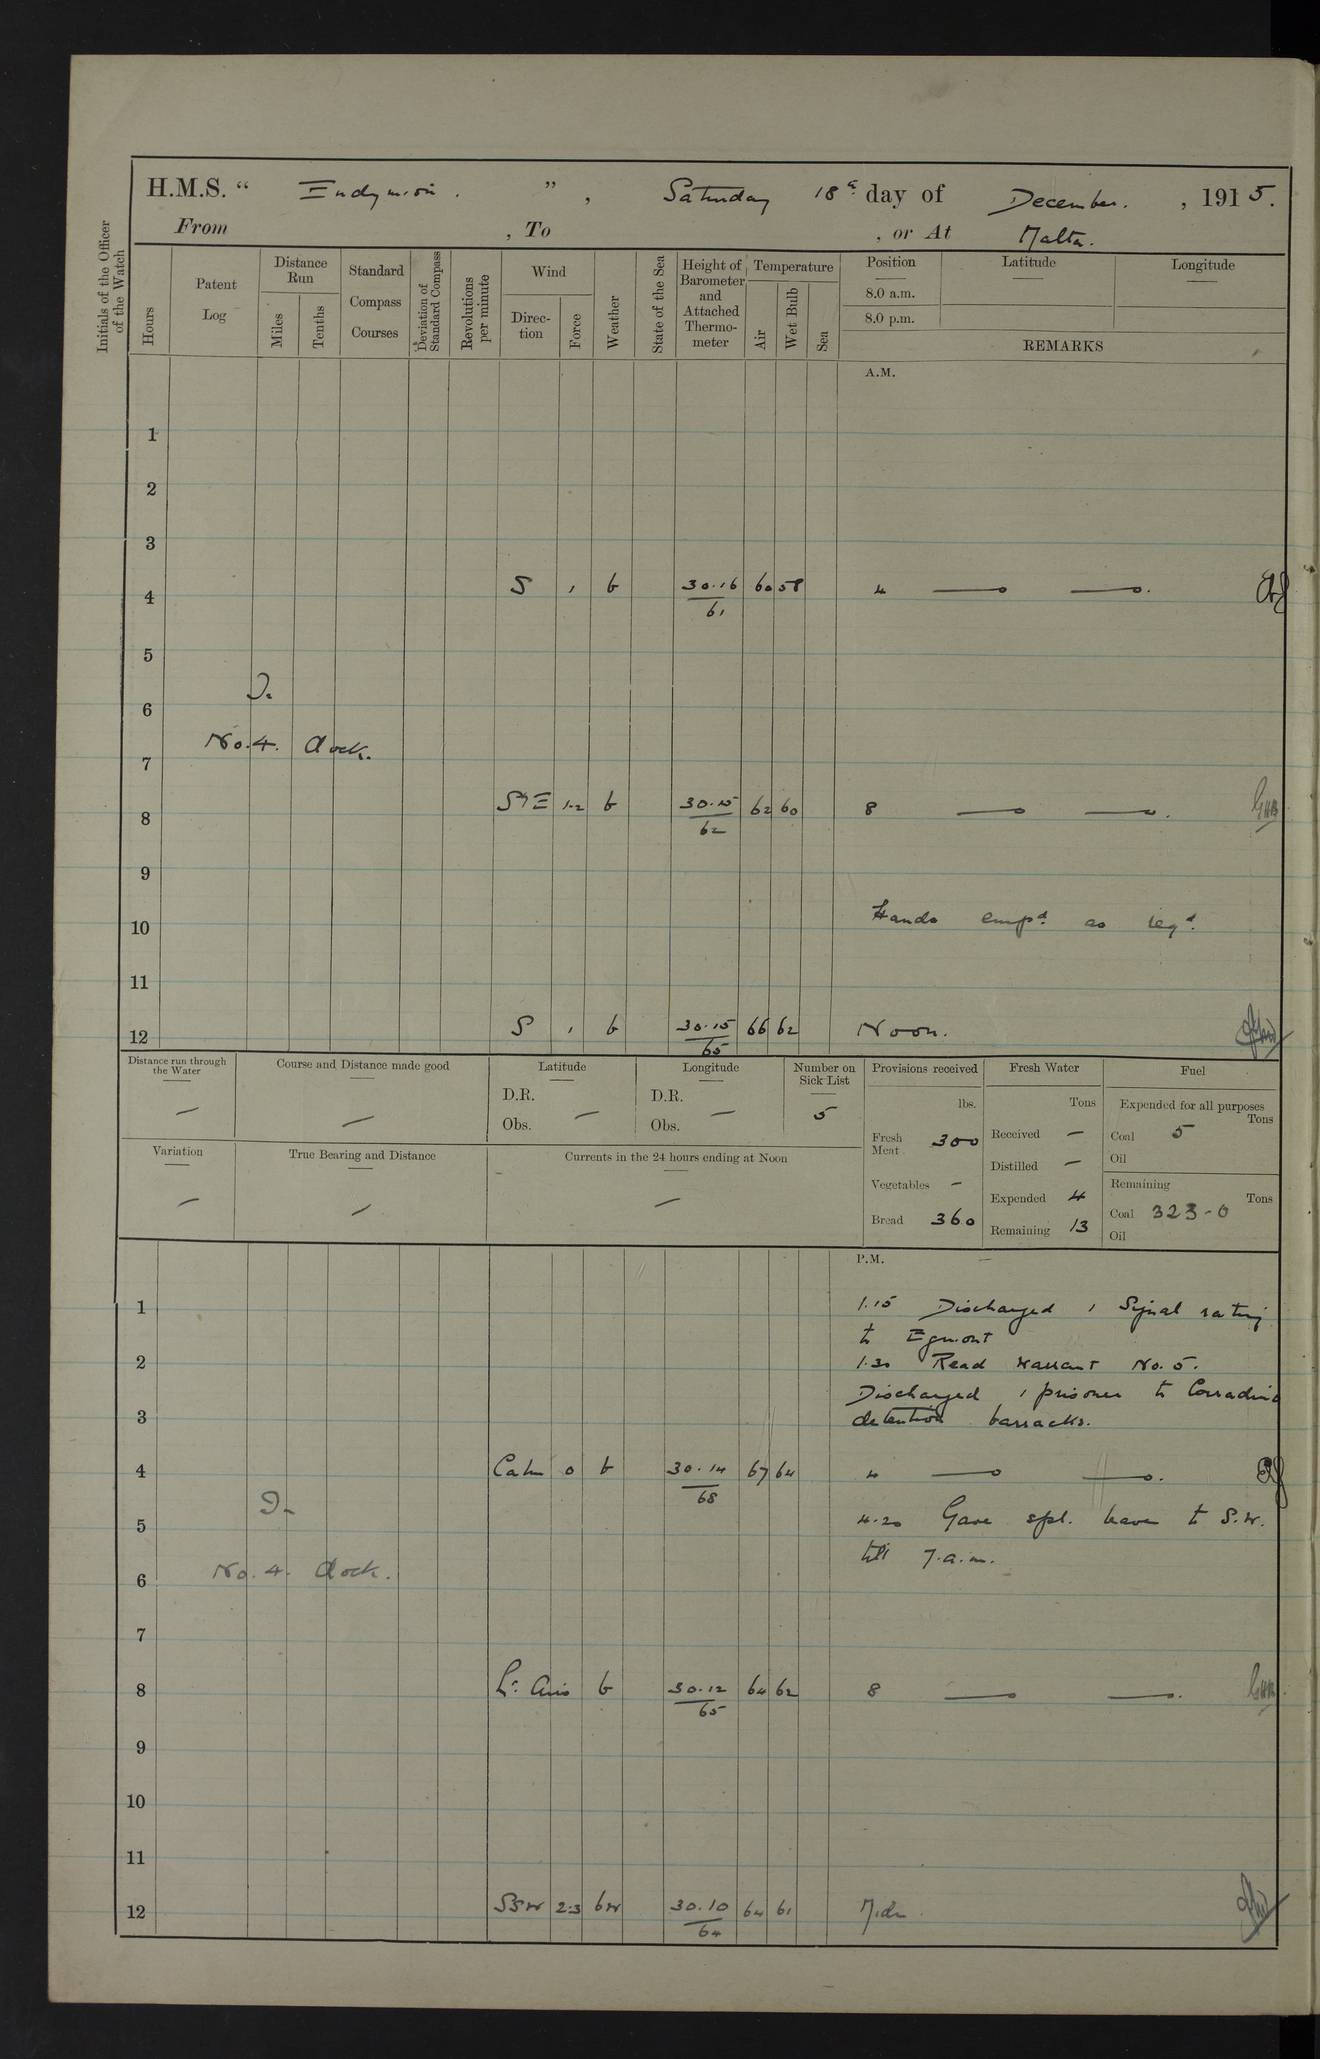 H.M.S. “ Endymion. ” , Saturday 18th day of December. , 1915.
From , To , or At Malta.
Initials of the Officer of the Watch
Hours
Patent Log
Distance Run
Miles
Tenths
Standard Compass Courses
Deviation of Standard Compass
Revolutions per minute
Wind
Direction
Force
Weather
State of the Sea
Height of Barometer and Attached Thermometer
Temperature
Air
Wet Bulb
Sea
Position
8.0 a.m.
8.0 p.m.
Latitude
Longitude
REMARKS
A.M.
1
2
3
4 S 1 b 30.16/61 60 58 4
5
In
6
No. 4. dock.
7
8 S'E 1-2 b 30.15/62 62 60 8 GHB
9
10 Hands empd. as reqd.
11
12 S 1 b 30.15/65 66 62 Noon.
Distance run through the Water
—
Course and Distance made good
—
Latitude
D.R.
Obs. —
Longitude
D.R.
Obs. —
Number on Sick List
5
Variation
—
True Bearing and Distance
—
Currents in the 24 hours ending at Noon
—
Provisions received
lbs.
Fresh Meat 300
Vegetables –
Bread 360
Fresh Water
Tons
Received —
Distilled —
Expended 4
Remaining 13
Fuel
Expended for all purposes
Tons
Coal 5
Oil
Remaining
Tons
Coal 323-0
Oil
P.M.
1 1.15 Discharged 1 Signal rating
to Egmont
2 1.30 Read warrant No. 5.
Discharged 1 prisoner to Corradino
3 detention barracks.
4 Calm 0 b 30.14/68 67 64 4
In
5 4.20 Gave spl. leave to S.W.
till 7.a.m.
6 No. 4. dock.
7
8 Lt. Airs b 30.12/65 64 62 8 GHB
9
10
11
12 SSW 2-3 bw 30.10/64 64 61 Midn